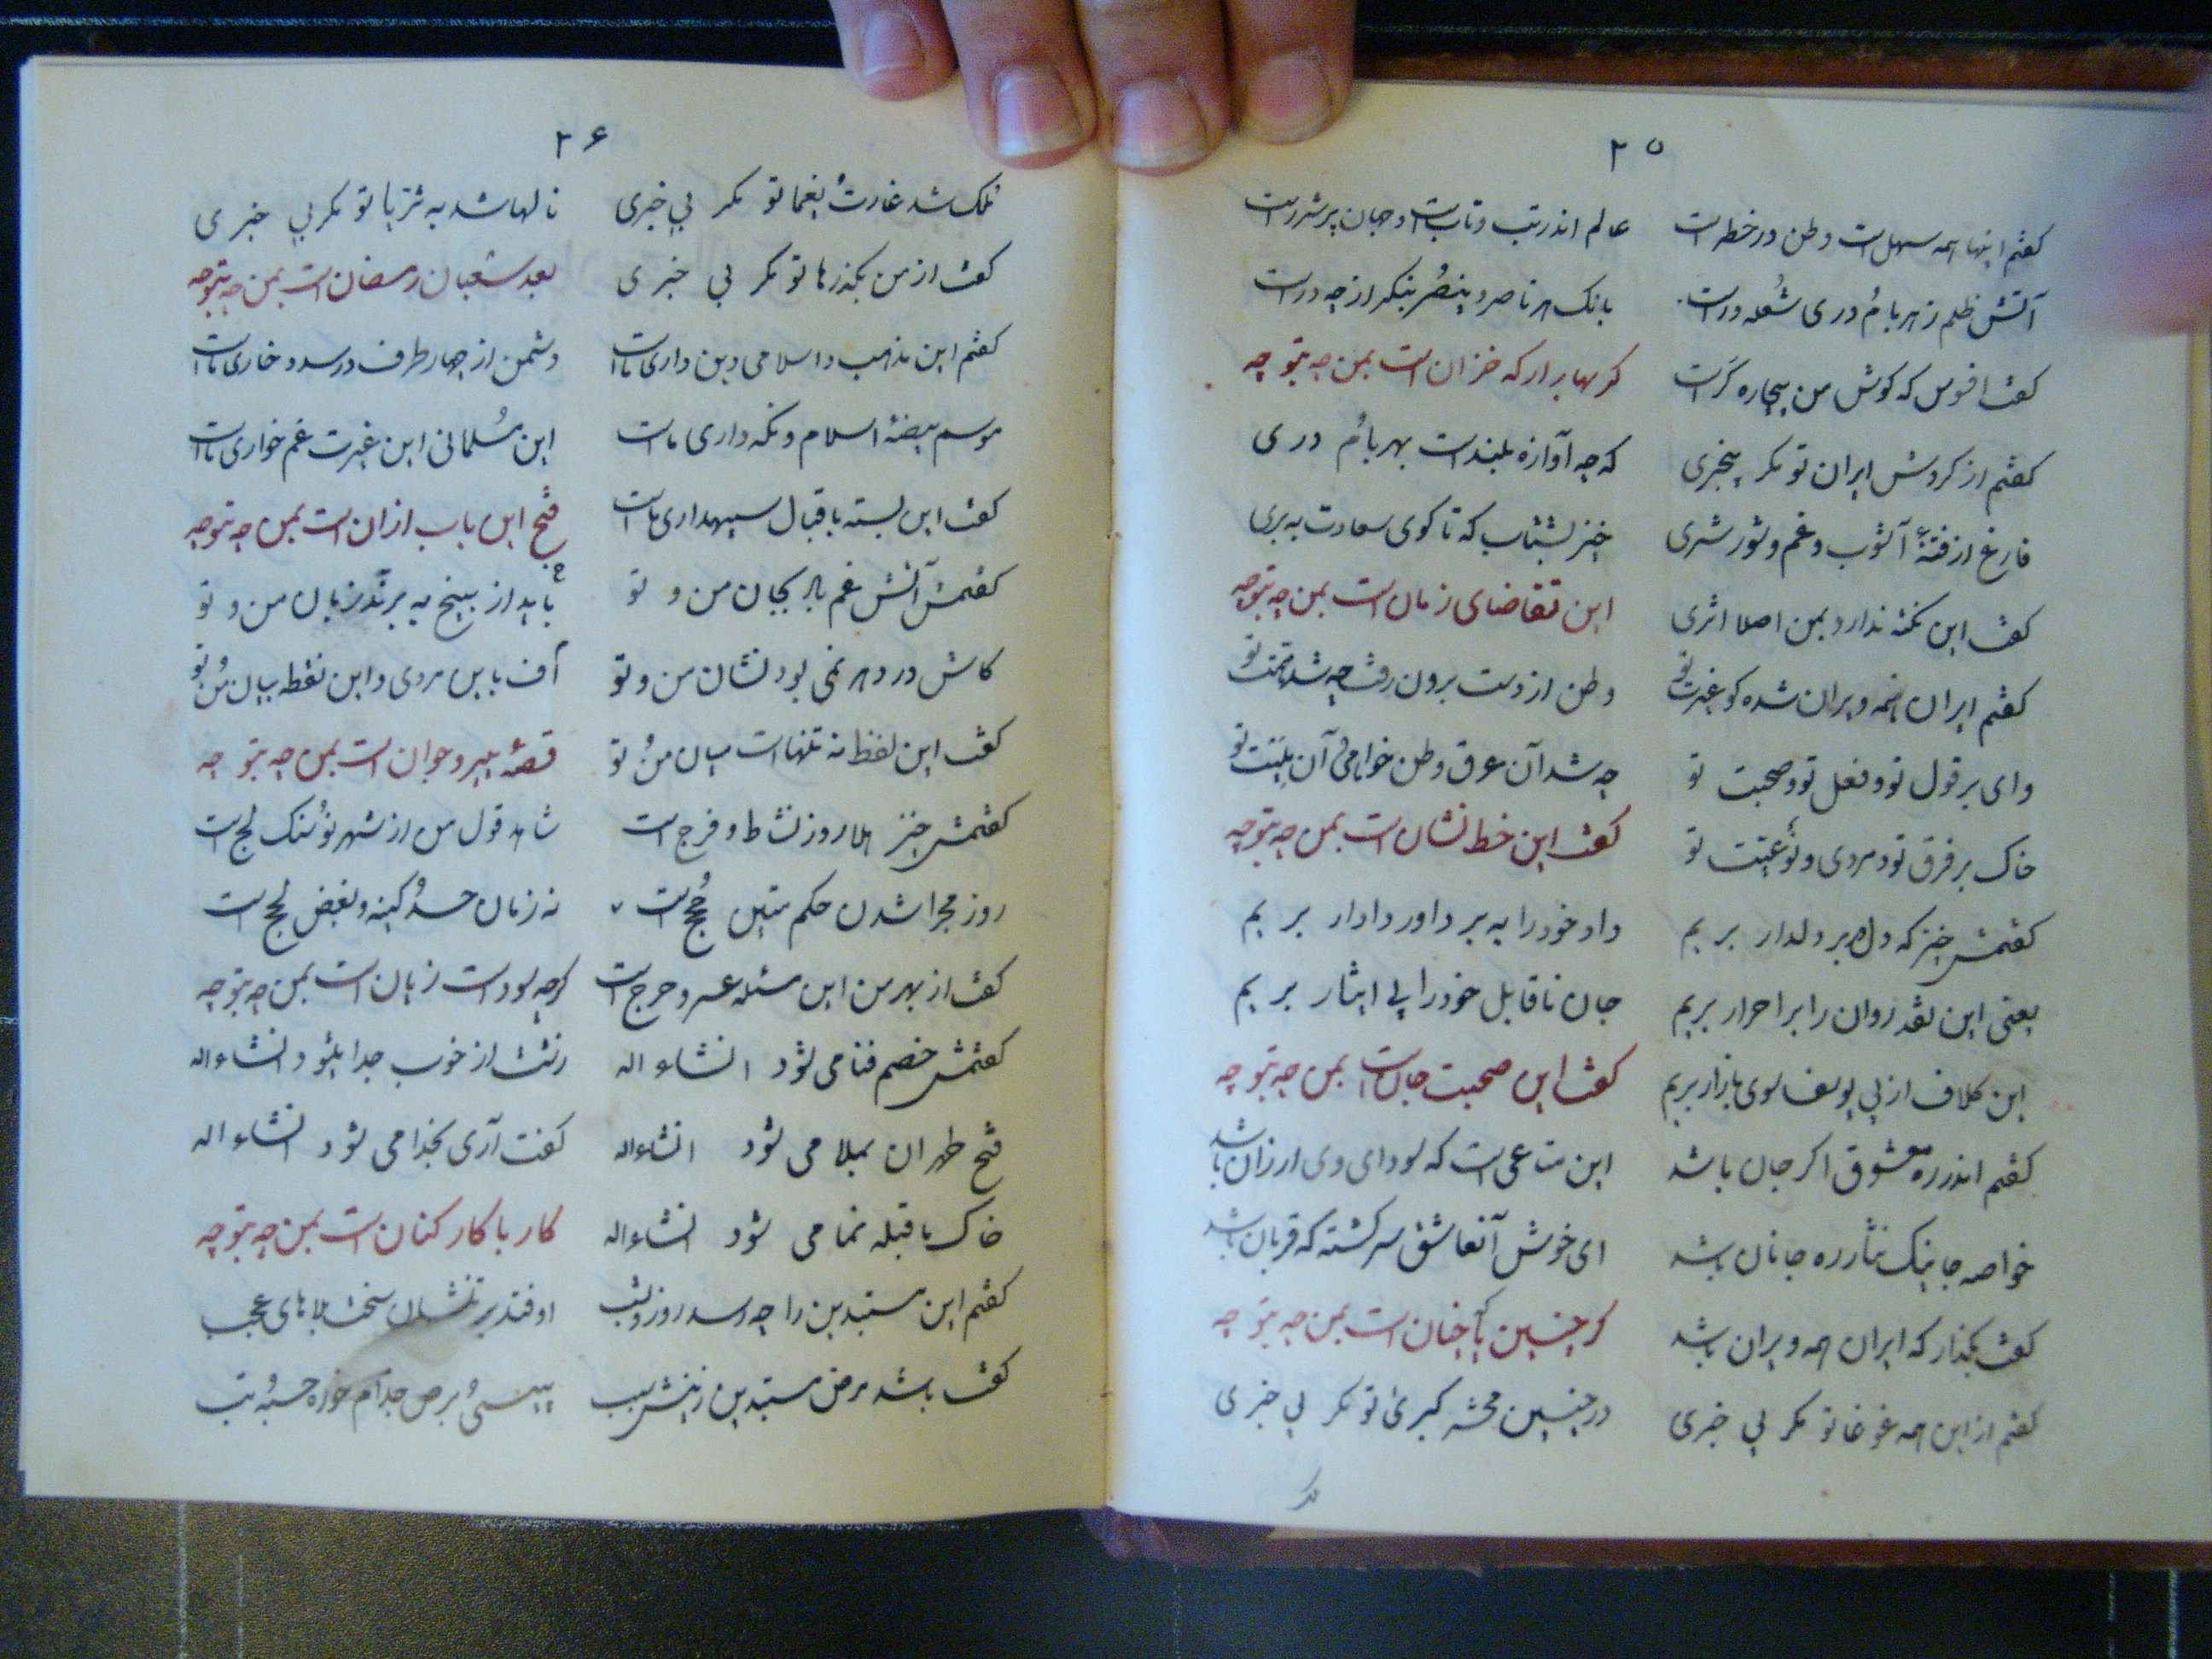 ۲۵
گفتم اینها همه سهل است وطن در خطر است عالم اندر تب و تاب است و جهان پر شرر است
آتش ظلم ز هر بام و دری شعله‌ور است بانک هر ناصر و ینصر بنگر از چه در است
گفت افسوس که گوش من بیچاره کر است گر بهار ار که خزان است بمن چه بتو چه
گفتم از گردش ایران تو مگر بیخبری که چه آوازه بلند است بهر بام و دری
فارغ از فتنهٔ آشوب و غم و شور شری خیز بشتاب که تا گوی سعادت به بری
گفت این نکته ندارد بمن اصلا اثری این تقاضای زمان است بمن چه بتو چه
گفتم ایران همه ویران شده کو غیرت تو وطن از دست برون رفت چه شد همت تو
وای بر قول تو و فعل تو و صحبت تو چه شد آن عرق وطن خواهی آن نیت تو
خاک بر فرق تو و مردی و تو غیّت تو گفت این خط نشان است بمن چه بتو چه
گفتمش خیز که دل بر دلدار بریم داد خود را به بر داور دادار بریم
یعنی این نقد روان را بر احرار بریم جان ناقابل خود را پی ایثار بریم
این کلاف از پی یوسف سوی بازار بریم گفت این صحبت جان است بمن چه بتو چه
گفتم اندر ره معشوق اگر جان باشد این متاعی است که سودای وی ارزان باشد
خواصه جانیک نثار ره جانان باشد ای خوش آنعاشق سرگشته که قربان باشد
گفت بگذار که ایران همه ویران باشد گر چنین یا چنان است بمن چه بتو چه
گفتم از این همه غوغا تو مگر بی خبری در چنین محشر کبری تو مگر بی خبری
۲۶
ملک شد غارت و یغما تو مگر بی خبری نالها شد به ثریا تو مگر بی خبری
گفت از من بگذرها تو مگر بی خبری بعد شعبان رمضان است بمن چه بتو چه
گفتم این مذهب و اسلامی و دین داری ما است دشمن از چهار طرف در رسد و خاری ما است
موسم بیضهٔ اسلام و نگه داری ما است این مسلمانی این غیرت غم خواری ما است
گفت این بسته باقبال سپهداری ما است فتح این باب از ان است بمن چه بتو چه
گفتمش آتش غم بجان من و تو باید از بیخ به برند زبان من و تو
کاش در دهر نمی بود نشان من و تو اف باین مردی و این نقطه بیان من و تو
گفت این لفظ نه تنها است میان من و تو قصهٔ پیر و جوان است بمن چه بتو چه
گفتمش خیز هلا روز نشاط و فرج است شاهد قول من از شهر نو سنگ لج است
روز مجرا شدن حکم متین حجج است نه زمان حسد و کینه و بغض لجج است
گفت از بهر من این مسئله عسر و حرج است گرچه سود است زیان است بمن چه بتو چه
گفتمش خصم فنا می شود انشاء اله زشت از خوب جدا میشود انشاء اله
فتح طهران بملا می شود انشاء اله گفت آری بخدا می شود انشاء اله
خاک ما قبله نما می شود انشاء اله کار با کارکنان است بمن چه بتو چه
گفتم این مستبدین را چه رسد روز و شب اوفتد بر تنشان سخت بلاهای عجب
گفت باشد مرض مستبدین زینش سبب پیسی و برص جذام خوره حسبه و تب